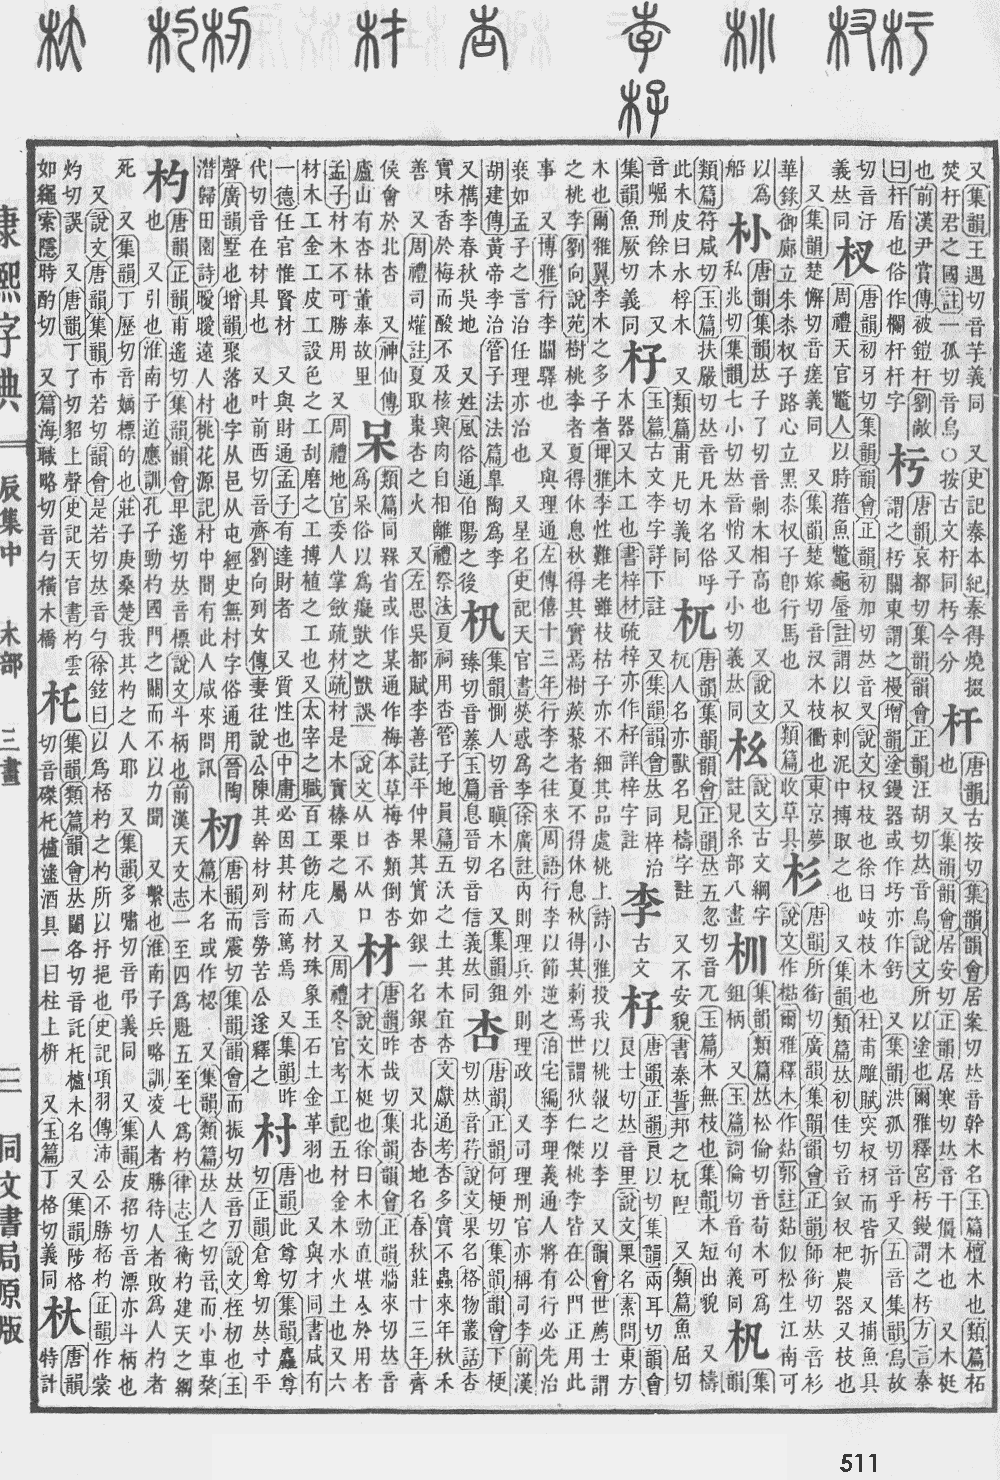 又集韻王遇切音芋義同 又史記秦本紀秦得燒掇
焚杅君之國註一孤切音烏○按古文杅同杇今分
杆
唐韻古按切集韻韻會居案切𠀤音幹木名玉篇檀木也類篇柘
也 又集韻韻會居安切正韻居寒切𠀤音干僵木也 又木梃
也前漢尹賞傳被鎧杆劉敞
曰杆盾也俗作欄杆杆字
杇
唐韻哀都切集韻韻會正韻汪胡切𠀤音烏說文所以塗也爾雅釋宮杇鏝謂之杇方言秦
謂之杇關東謂之槾增韻塗鏝器或作圬亦作釫 又集韻洪孤切音乎又五音集韻烏故
切音汙
義𠀤同
杈
唐韻初牙切集韻韻會正韻初加切𠀤音叉說文杈枝也徐曰岐枝木也杜甫雕賦突杈枒而皆折 又捕魚具
周禮天官鼈人以時簎魚鼈龜蜃註謂以杈刺泥中搏取之也 又集韻類篇𠀤初佳切音釵杈杷農器又枝也
又集韻楚懈切音瘥義同 又集韻楚嫁切音汊木枝衢也東京夢
華錄御廊立朱桼杈子路心立黑桼杈子卽行馬也 又類篇收草具
杉
唐韻所銜切廣韻集韻韻會正韻師銜切𠀤音衫
說文作煔爾雅釋木作𪐀郭註𪐀似松生江南可
以為
船
唐韻集韻𠀤子了切音剿木相高也 又說文
私兆切集韻七小切𠀤音悄又子小切義𠀤同
說文古文綱字
註見糸部八畫
杊
集韻類篇𠀤松倫切音荀木可為
鉏柄 又玉篇詞倫切音句義同
杋
集
韻
類篇符咸切玉篇扶嚴切𠀤音凡木名俗呼
此木皮曰水桴木 又類篇甫凡切義同
杌
唐韻集韻韻會正韻𠀤五忽切音兀玉篇木無枝也集韻木短出貌 又檮
杌人名亦獸名見檮字註 又不安貌書秦誓邦之杌隉 又類篇魚屈切
音崛刖餘木 又
集韻魚厥切義同
杍
玉篇古文李字詳下註 又集韻韻會𠀤同梓治
木器又木工也書梓材疏梓亦作杍詳梓字註
李
古文
杍
唐韻正韻良以切集韻兩耳切韻會
良士切𠀤音里說文果名素問東方
木也爾雅翼李木之多子者埤雅李性難老雖枝枯子亦不細其品處桃上詩小雅投我以桃報之以李 又韻會世薦士謂
之桃李劉向說苑樹桃李者夏得休息秋得其實焉樹蒺藜者夏不得休息秋得其刺焉世謂狄仁傑桃李皆在公門正用此
事 又博雅行李關驛也 又與理通左傳僖十三年行李之往來周語行李以節逆之泊宅編李理義通人將有行必先治
裝如孟子之言治任理亦治也 又星名史記天官書熒惑為李徐廣註內則理兵外則理政 又司理刑官亦稱司李前漢
胡建傳黃帝李治管子法法篇臯陶為李
又檇李春秋吳地 又姓風俗通伯陽之後
集韻測人切音瞋木名 又集韻鉏
臻切音蓁玉篇息晉切音信義𠀤同
杏
唐韻正韻何梗切集韻韻會下梗
切𠀤音荇說文果名格物叢話杏
實味香於梅而酸不及核與肉自相離禮祭法夏祠用杏管子地員篇五沃之土其木宜杏文獻通考杏多實不蟲來年秋禾
善 又周禮司爟註夏取棗杏之火 又左思吳都賦李善註平仲果其實如銀一名銀杏 又北杏地名春秋莊十三年齊
侯會於北杏 又神仙傳
廬山有杏林董奉故里
呆
類篇同槑省或作某通作梅本草梅杏類倒杏
為呆俗以為癡獃之獃誤 說文从口不从口
材
唐韻昨哉切集韻韻會正韻牆來切𠀤音
才說文木梃也徐曰木勁直堪入於用者
孟子材木不可勝用 又周禮地官委人掌斂疏材疏材是木實榛栗之屬 又周禮冬官考工記五材金木水火土也又六
材木工金工皮工設色之工刮磨之工摶植之工也又太宰之職百工飭庀八材珠象玉石土金革羽也 又與才同書咸有
一德任官惟賢材 又與財通孟子有達財者 又質性也中庸必因其材而篤焉 又集韻昨
代切音在材具也 又叶前西切音齊劉向列女傳妻往說公陳其幹材列言勞苦公遂釋之
村
唐韻此尊切集韻麤尊
切正韻倉尊切𠀤寸平
聲廣韻墅也增韻聚落也字从邑从屯經史無村字俗通用晉陶
潛歸田園詩曖曖遠人村桃花源記村中聞有此人咸來問訊
杒
唐韻而震切集韻韻會而振切𠀤音刃說文桎杒也玉
篇木名或作梕 又集韻類篇𠀤人之切音而小車棃
杓
唐韻正韻甫遙切集韻韻會卑遙切𠀤音標說文斗柄也前漢天文志一至四為魁五至七為杓律志玉衡杓建天之綱
也 又引也淮南子道應訓孔子勁杓國門之關而不以力聞 又繫也淮南子兵略訓凌人者勝待人者敗為人杓者
死 又集韻丁歷切音嫡標的也莊子庚桑楚我其杓之人耶 又集韻多嘯切音弔義同 又集韻皮招切音漂亦斗柄也
又說文唐韻集韻市若切韻會是若切𠀤音勺徐鉉曰以為桮杓之杓所以抒挹也史記項羽傳沛公不勝桮杓正韻作裳
灼切誤 又唐韻丁了切貂上聲史記天官書杓雲
如繩索隱時酌切 又篇海職略切音勺橫木橋
杔
集韻類篇韻會𠀤闥各切音託杔櫨木名 又集韻陟格
切音磔杔櫨瀘酒具一曰柱上枅 又玉篇丁格切義同
杕
唐韻
特計
康熙字典 辰集中 木部 三畫 二 同文書局原版
511